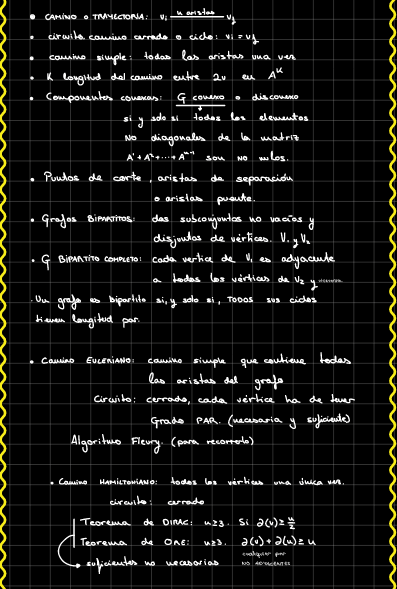 • CAMINO o TRAYECTORIA: vi n aristas vj
• circuito. camino cerrado o ciclo: vi = vj
• camino simple: todas las aristas una vez
• K longitud del camino entre 2v en A^K
• Componentes conexas: G conexo o disconexo
si y solo si todos los elementos
NO diagonales de la matriz
A¹+A²+...+A^n-1 son NO nulos.
• Puntos de corte, aristas de separación
o aristas puente.
• Grafos BIPARTITOS: dos subconjuntos no vacíos y
disjuntos de vértices. V₁ y V₂
• G BIPARTITO COMPLETO: cada vertice de V₁ es adyacente
a todos los vértices de V₂ y
• Un grafo es bipartito si, y solo si, TODOS sus ciclos
tienen longitud par.
• Camino EULERIANO: camino simple que contiene todas
las aristas del grafo
Circuito: cerrado, cada vértice ha de tener
Grado PAR. (necesaria y suficiente)
Algoritmo Fleury. (para recorrerlo)
• Camino HAMILTONIANO: todos los vértices una única vez.
circuito: cerrado
Teorema de DIRAC: n≥3. Si ∂(v)≥n/2
Teorema de ORE: n≥3. ∂(v)+∂(u)≥n
cualquier par
NO ADYACENTES
• suficientes no necesarias